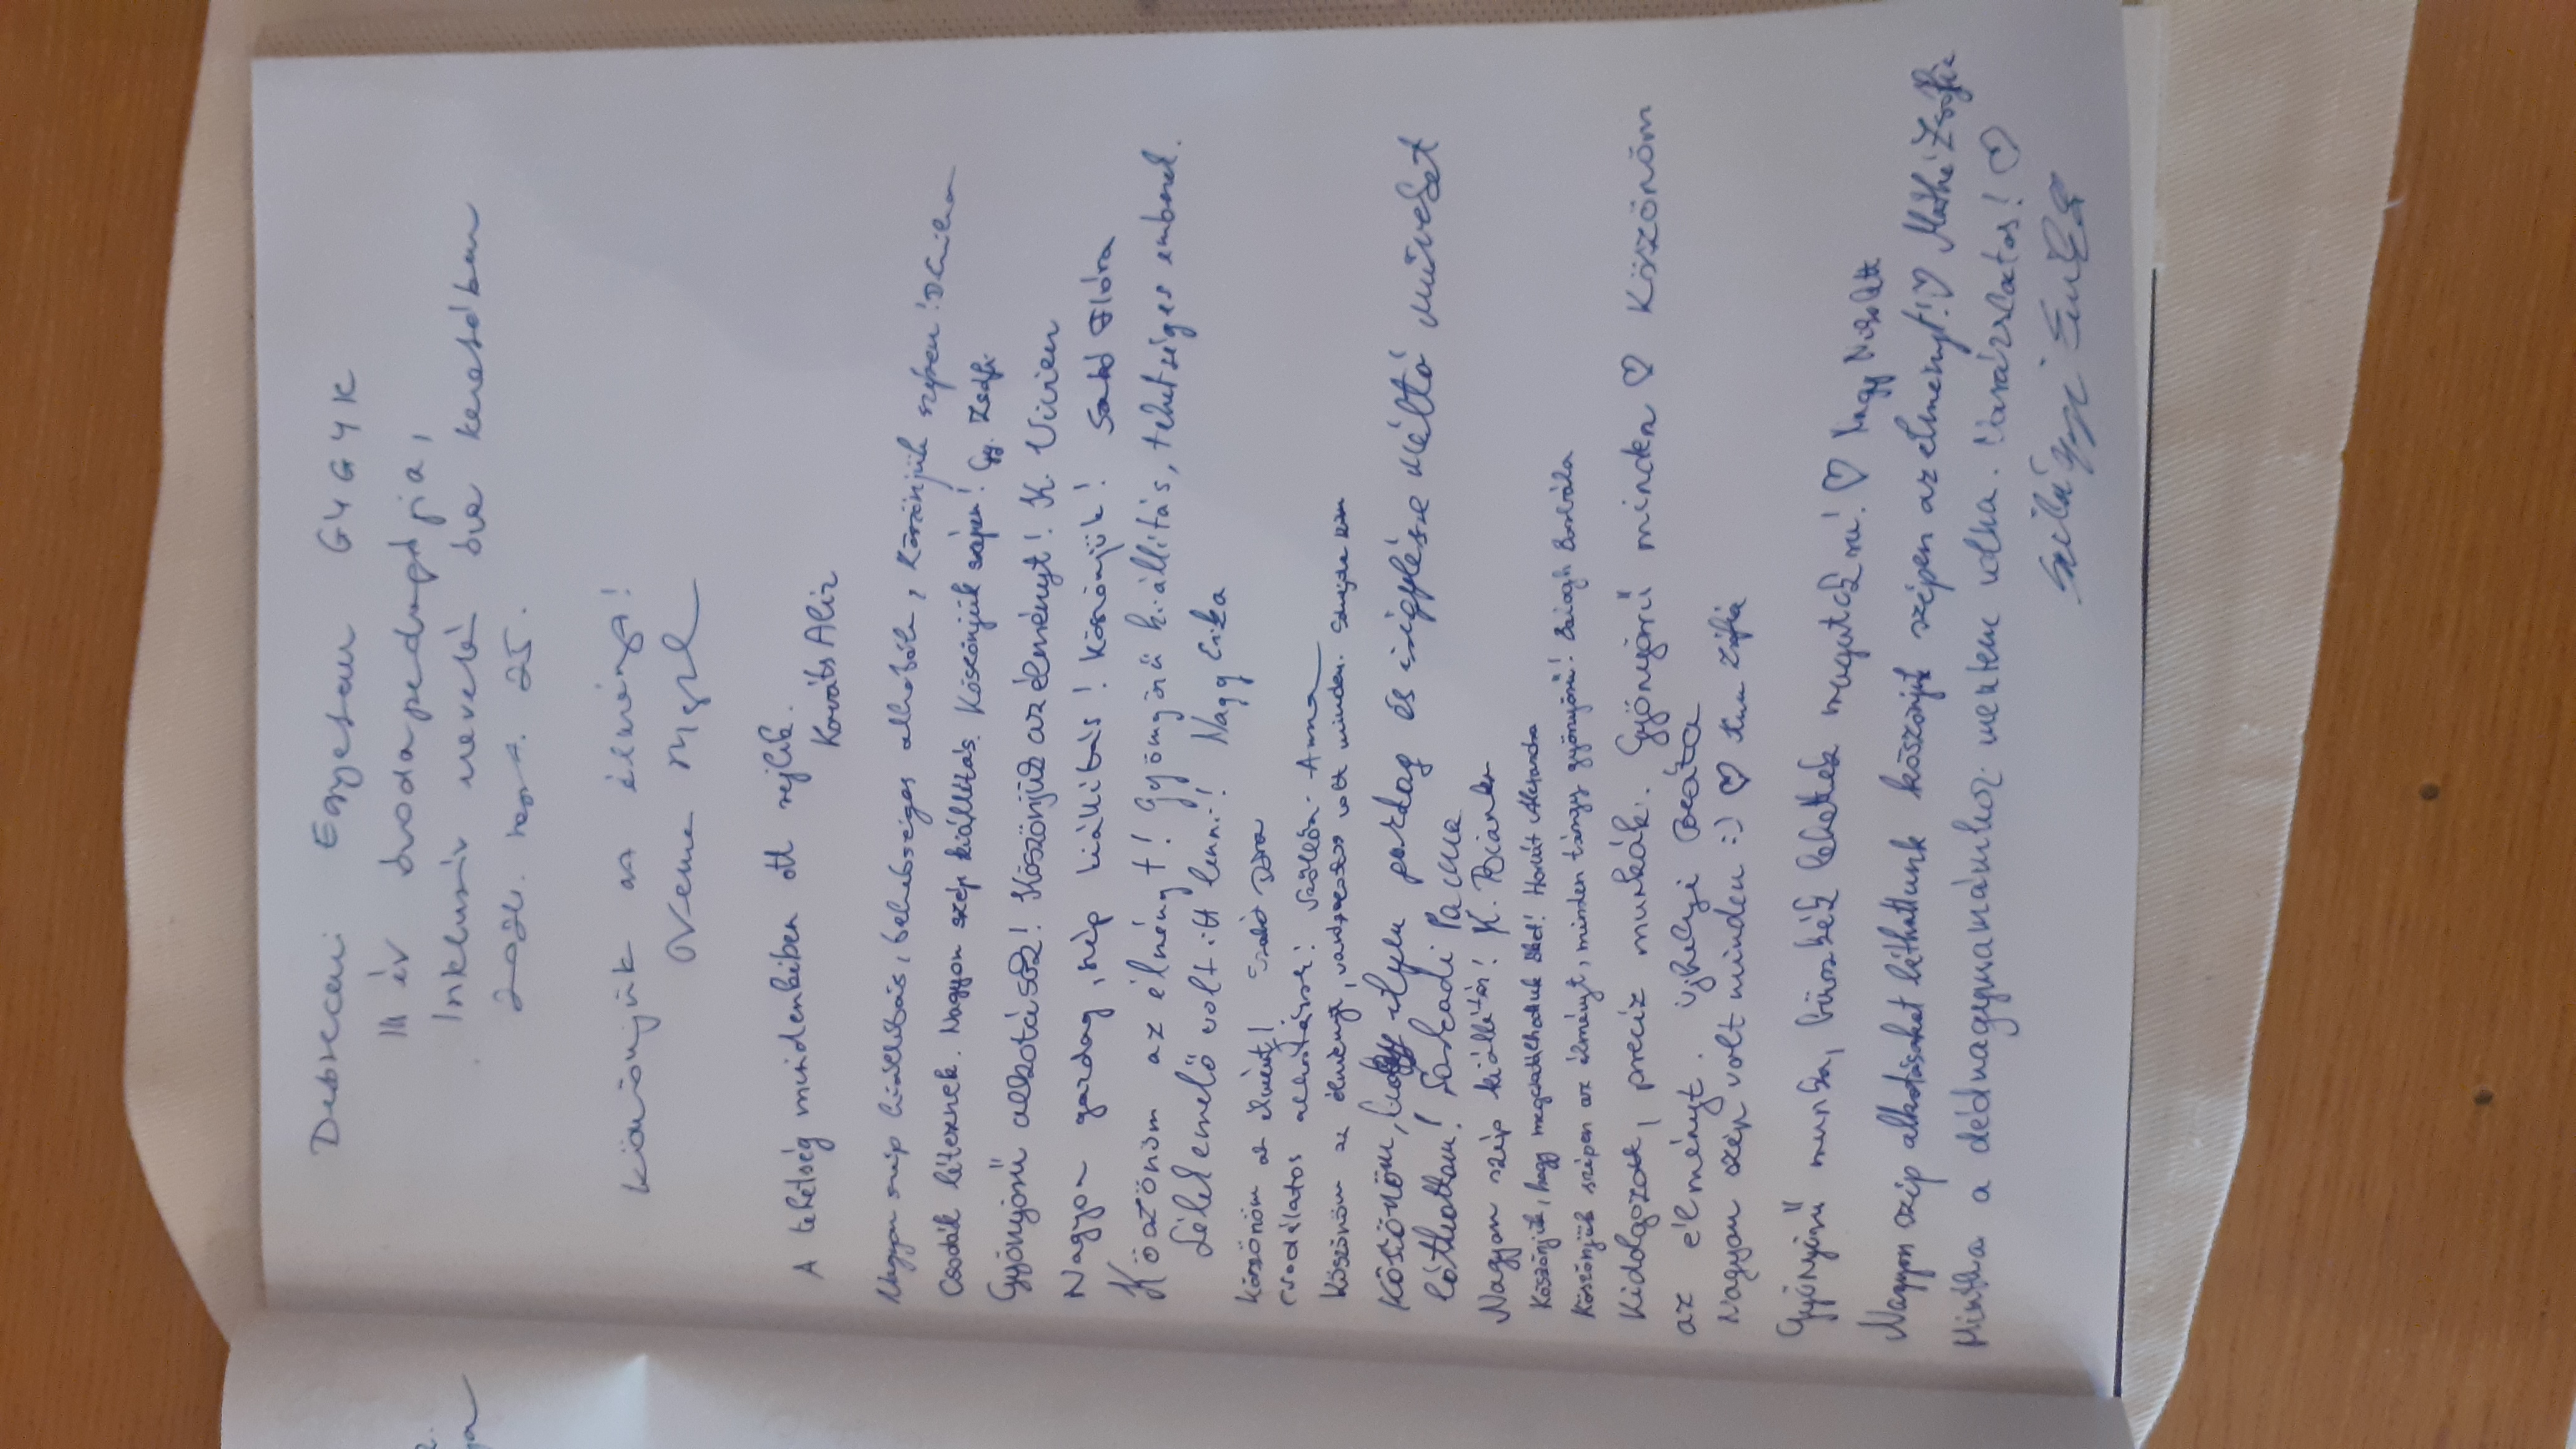 Debreceni Egyetem GYGYK
III év óvodapedagógia,
Inkluzív nevelés óra keretében
2024. 25.
Köszönjük az élményt!
A tehetség mindenkiben ott rejlik.
Kováts Aliz
Nagyon szép kiállítás, tehetséges alkotók, Köszönjük szépen!
Csodák léteznek. Nagyon szép kiállítás. Köszönjük szépen! Gy. Zsófi
Gyönyörű alkotások! Köszönjük az élményt! K. Vivien
Nagyon gazdag, szép kiállítás! Köszönjük! Szabó Flóra
Köszönöm az élményt! Gyönyörű kiállítás, tehetséges emberek.
Lélekemelő volt itt lenni! Nagy Erika
Köszönöm az élményt! Szabó Dóra
Csodálatos alkotások! Szöllősi Anna
Köszönöm az élményt, varázslatos volt minden.
Köszönöm, hogy ilyen gazdag és irigylésre méltó művéset
láthattam! Sarkadi Panna
Nagyon szép kiállítás! K. Bianka
Köszönjük, hogy megcsodálhattuk őket! Horvát Alexandra
Köszönjük szépen az élményt, minden tárgy gyönyörű! Balogh Borbála
Kidolgozott, precíz munkák. Gyönyörű minden ♡ Köszönöm
az élményt. Ujhelyi Beáta
Nagyon szép volt minden :) ♡ Kun Zsófia
Gyönyörű munka, büszkék lehettek magatokra! ♡ Nagy Nikolett
Nagyon szép alkotásokat láthattunk köszönjük szépen az élményt! ♡ Máthé Zsófia
Mintha a dédnagymamámhoz mentem volna. Varázslatos! ♡
Szilágyi Enikő